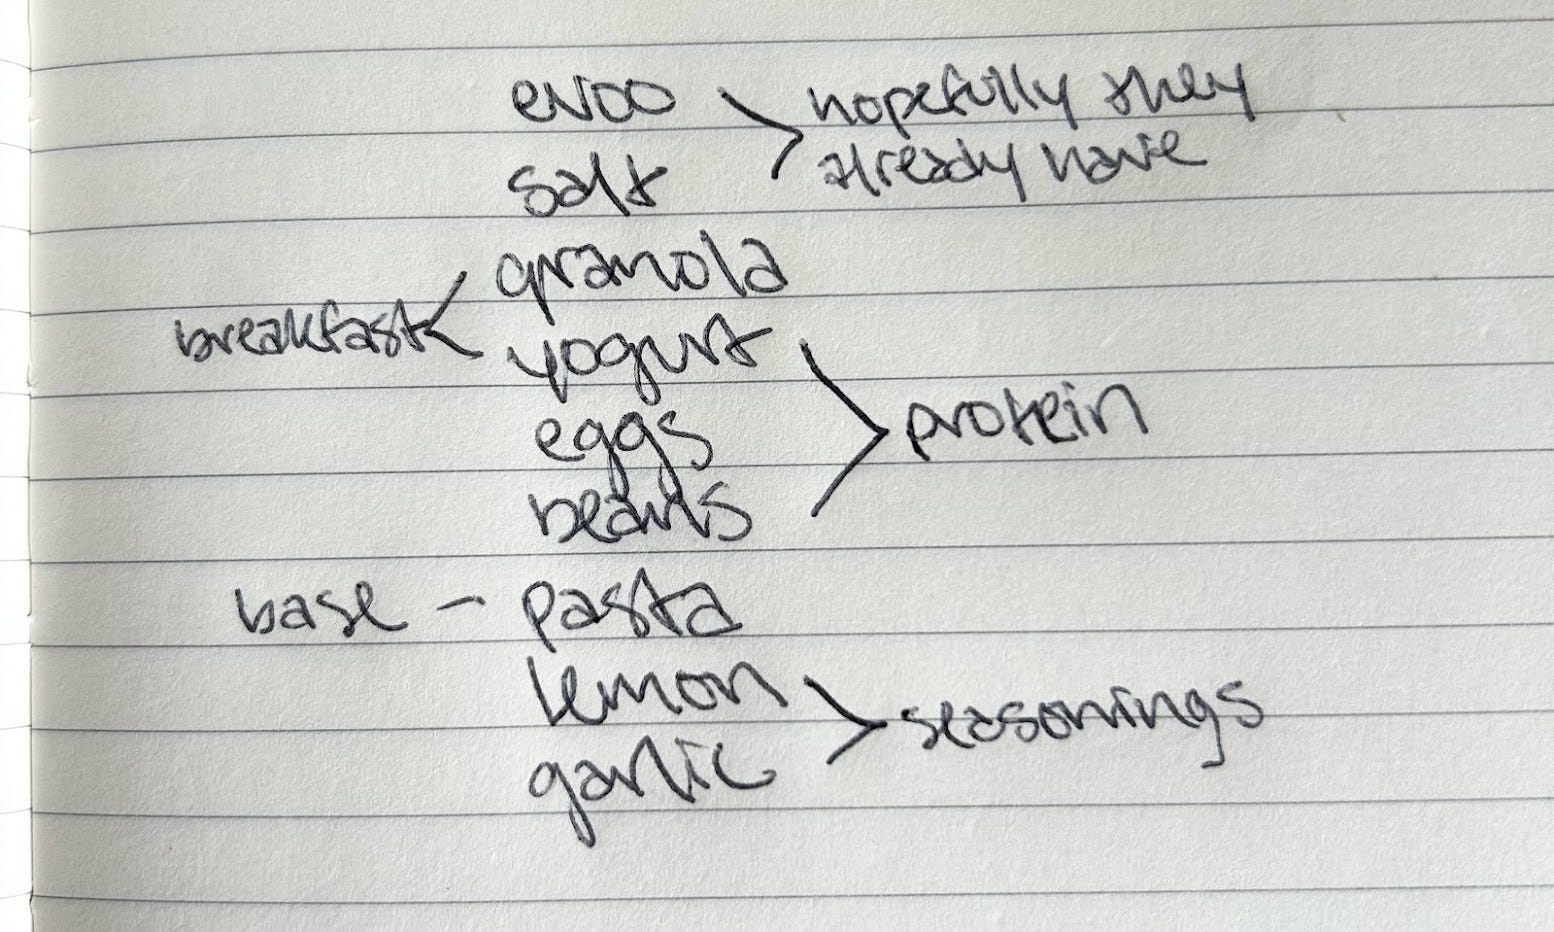 evoo > hopefully they
already have
salt
granola
breakfast < yogurt
eggs > protein
beans
base - pasta
lemon
garlic > seasonings